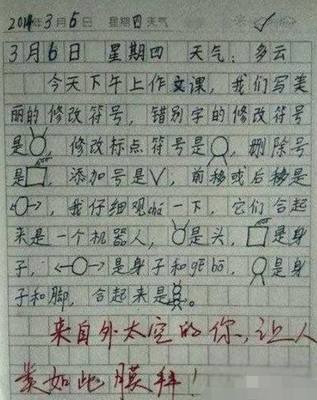 2014年3月6日 星期四 天气
3月6日 星期四 天气:多云
今天下午上作文课,我们写美
丽的修改符号,错别字的修改符号
是,修改标点符号是,删除号
是,添加号是∨,前移或后移是
,我仔细观chá一下,它们合起
来是一个机器人,是头,是身
子,是身子和gē bo,是身
子和脚,合起来是。
来自外太空的你,让人
类如此膜拜!